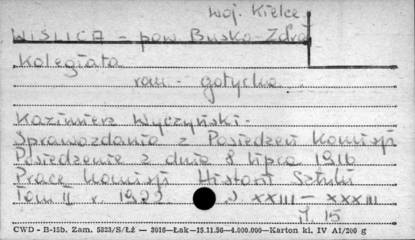 woj. Kielce
WIŚLICA - pow. Busko-Zdrój
Kolegiata
rom - gotycka.
Kazimierz Wyczyński -
Sprawozdania z Posiedzeń Komisji
Posiedzenie z dnia 8 lipca 1916
Prace Komisji Historii Sztuki
Tom II r. 1922 S XXIII - XXXIII
il. 15
CWD - B-15b. Zam. 5823/S/Łż — 3016—Łak—15.11.56—4.000.000—Karton kl. IV A1/200 g